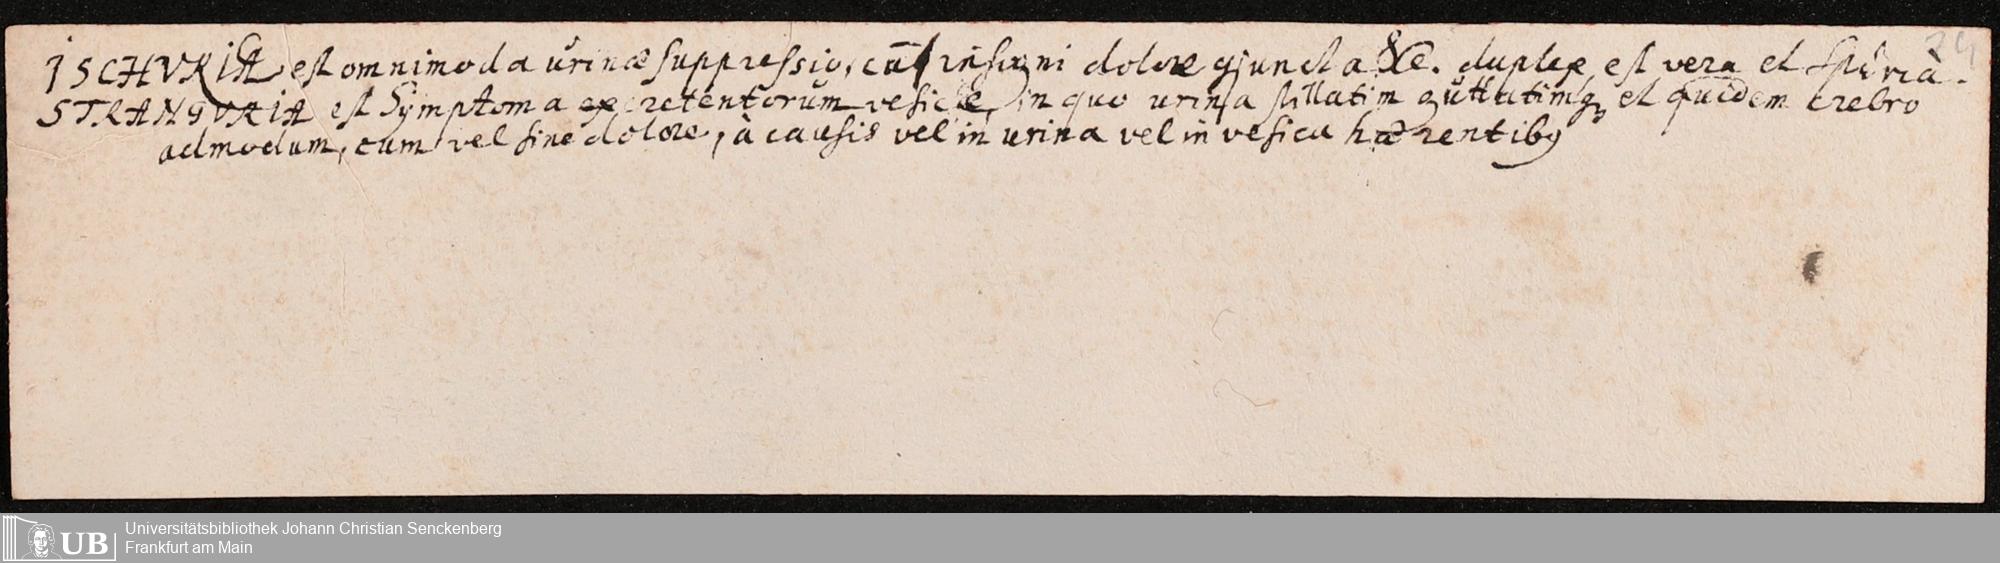 24
ISCHVRIA est omnimoda urinæ suppressio, cū insigni dolore cjuncta &c. duplex est vera et spuria.
STRANGVRIA est Symptoma excretentorum vesicæ, in quo urina stillatim guttatimq et quidem crebro
admodum, cum vel sine dolore, à causis vel in urina vel in vesica hærentibq
UB
Universitätsbibliothek Johann Christian Senckenberg
Frankfurt am Main